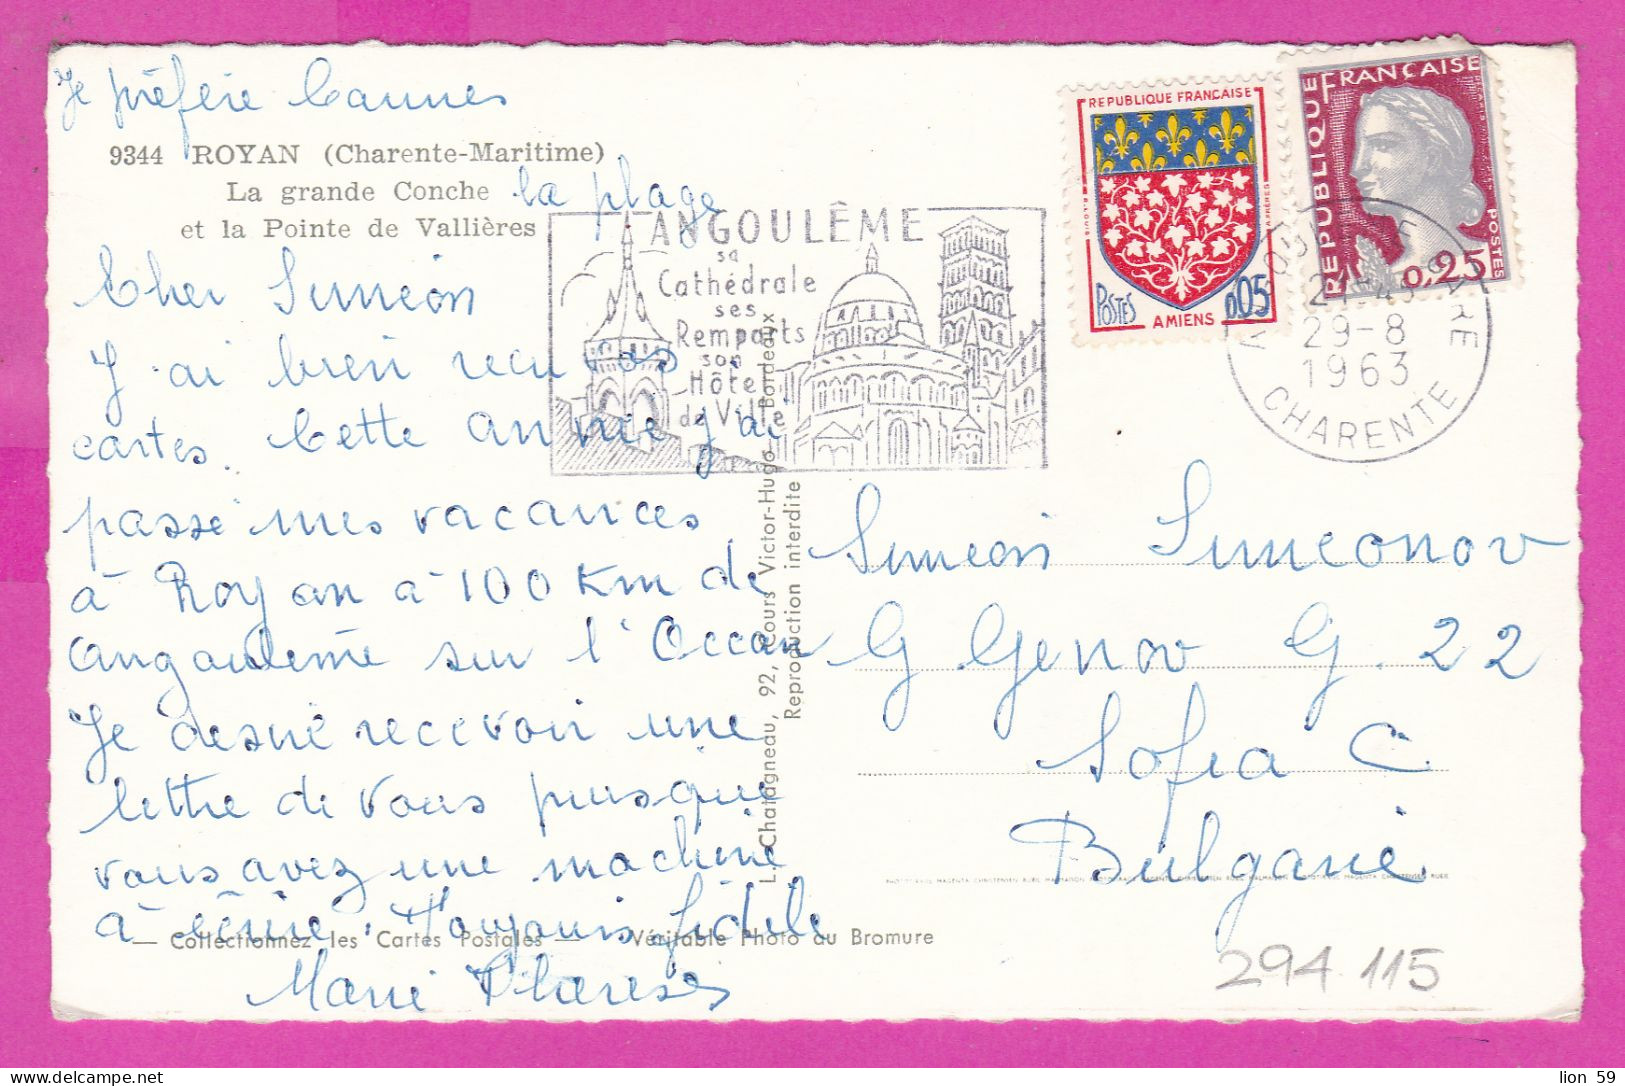 Je préfère Cannes
9344 ROYAN (Charente-Maritime)
La grande Conche
et la Pointe de Vallières
la plage
Cher Siméon
J'ai bien reçu vos
cartes. Cette année j'ai
passé mes vacances
à Royan à 100 Km de
Angoulême sur l'Océan
Je désire recevoir une
lettre de vous puisque
vous avez une machine
à écrire. Toujours fidèle
Marie Thérèse
— Collectionnez les Cartes Postales — Véritable Photo au Bromure
L. Chatagneau, 92, Cours Victor-Hugo - Bordeaux
Reproduction interdite
ANGOULÊME
sa
Cathédrale
ses
Remparts
son
Hôtel
de Ville
REPUBLIQUE FRANÇAISE
POSTES
0,05
AMIENS
REPUBLIQUE FRANÇAISE
POSTES
0,25
29-8
1963
CHARENTE
Siméon Simeonov
G Genov G. 22
Sofia C
Bulgarie
294 115
lion 59